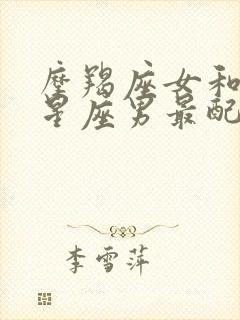 摩羯座女和
星座男最配
李雪萍